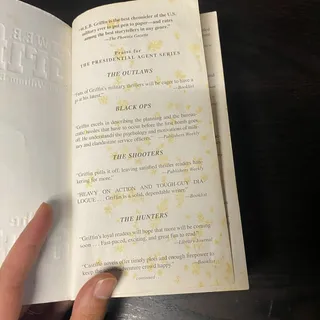 "W.E.B. Griffin is the best chronicler of the U.S.
military ever to put pen to paper—and rates
among the best storytellers in any genre."
—The Phoenix Gazette
Praise for
THE PRESIDENTIAL AGENT SERIES
THE OUTLAWS
of Griffin's military thrillers will be eager to have a
at his latest."
—Booklist
BLACK OPS
"Griffin excels in describing the planning and the
that have to occur before the first bomb
off. He understands the psychology and motivation of
and clandestine service officers."
—Publishers Weekly
THE SHOOTERS
"Griffin pulls it off, leaving satisfied readers
for more."
—Publishers Weekly
"HEAVY ON ACTION AND TOUGH-GUY DIA-
LOGUE . . . Griffin is a solid, dependable writer."
—Booklist
THE HUNTERS
"Griffin's loyal readers will hope that more will be coming
soon . . . Fast-paced, exciting, and great fun to read."
—Library Journal
"Griffin
plenty and enough firepower to
keep
crowd happy."
—Booklist
continued